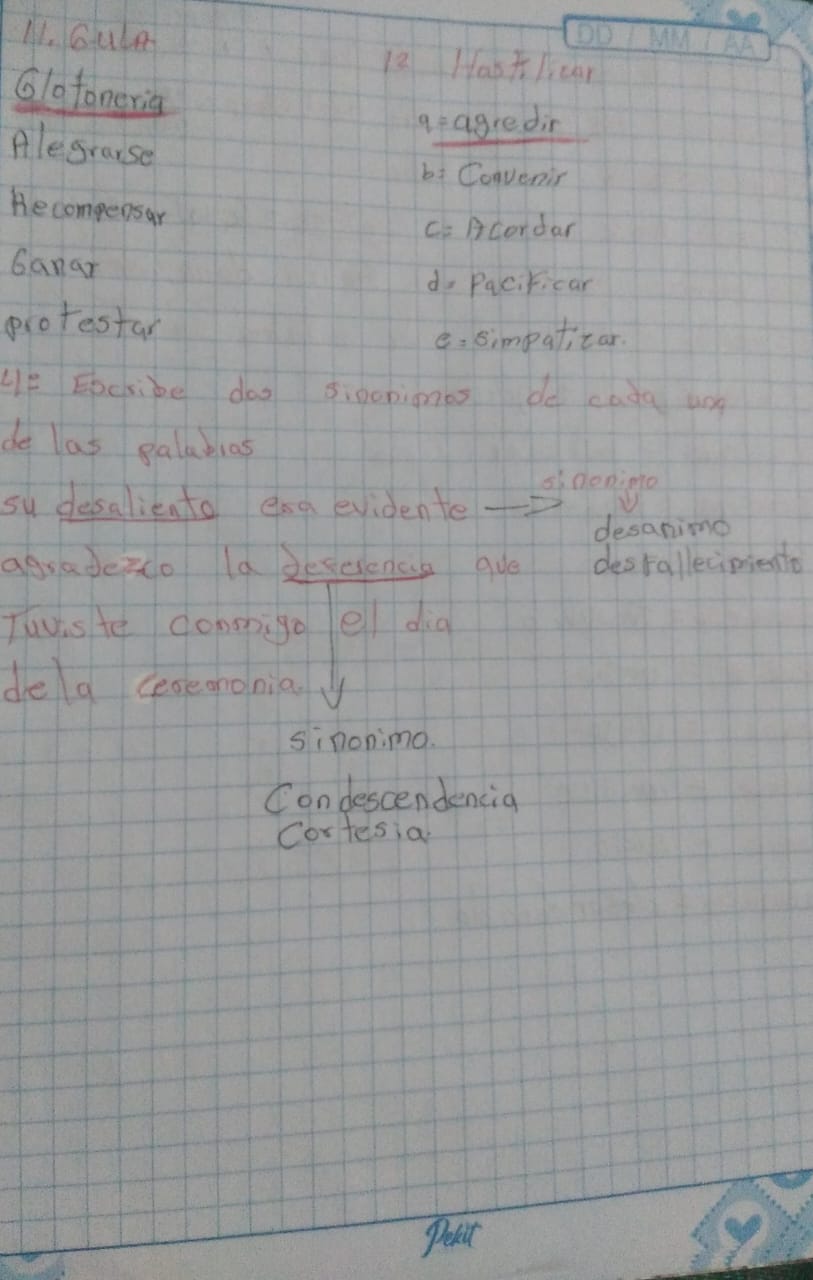 DD / MM / AA
11. GULA
Glotoneria
Alegrarse
Recompensar
Ganar
protestar
12 Hostilicar
a= agredir
b= Convenir
c= Acordar
d= Pacificar
e= simpatizar.
4= Escribe dos sinonimos de cada una
de las palabras
su desaliento era evidente → sinonimo
desanimo
desfallecimiento
agradezco la deferencia que
Tuviste conmigo el dia
de la ceremonia.
sinonimo.
Condescendencia
Cortesia.
Pekit